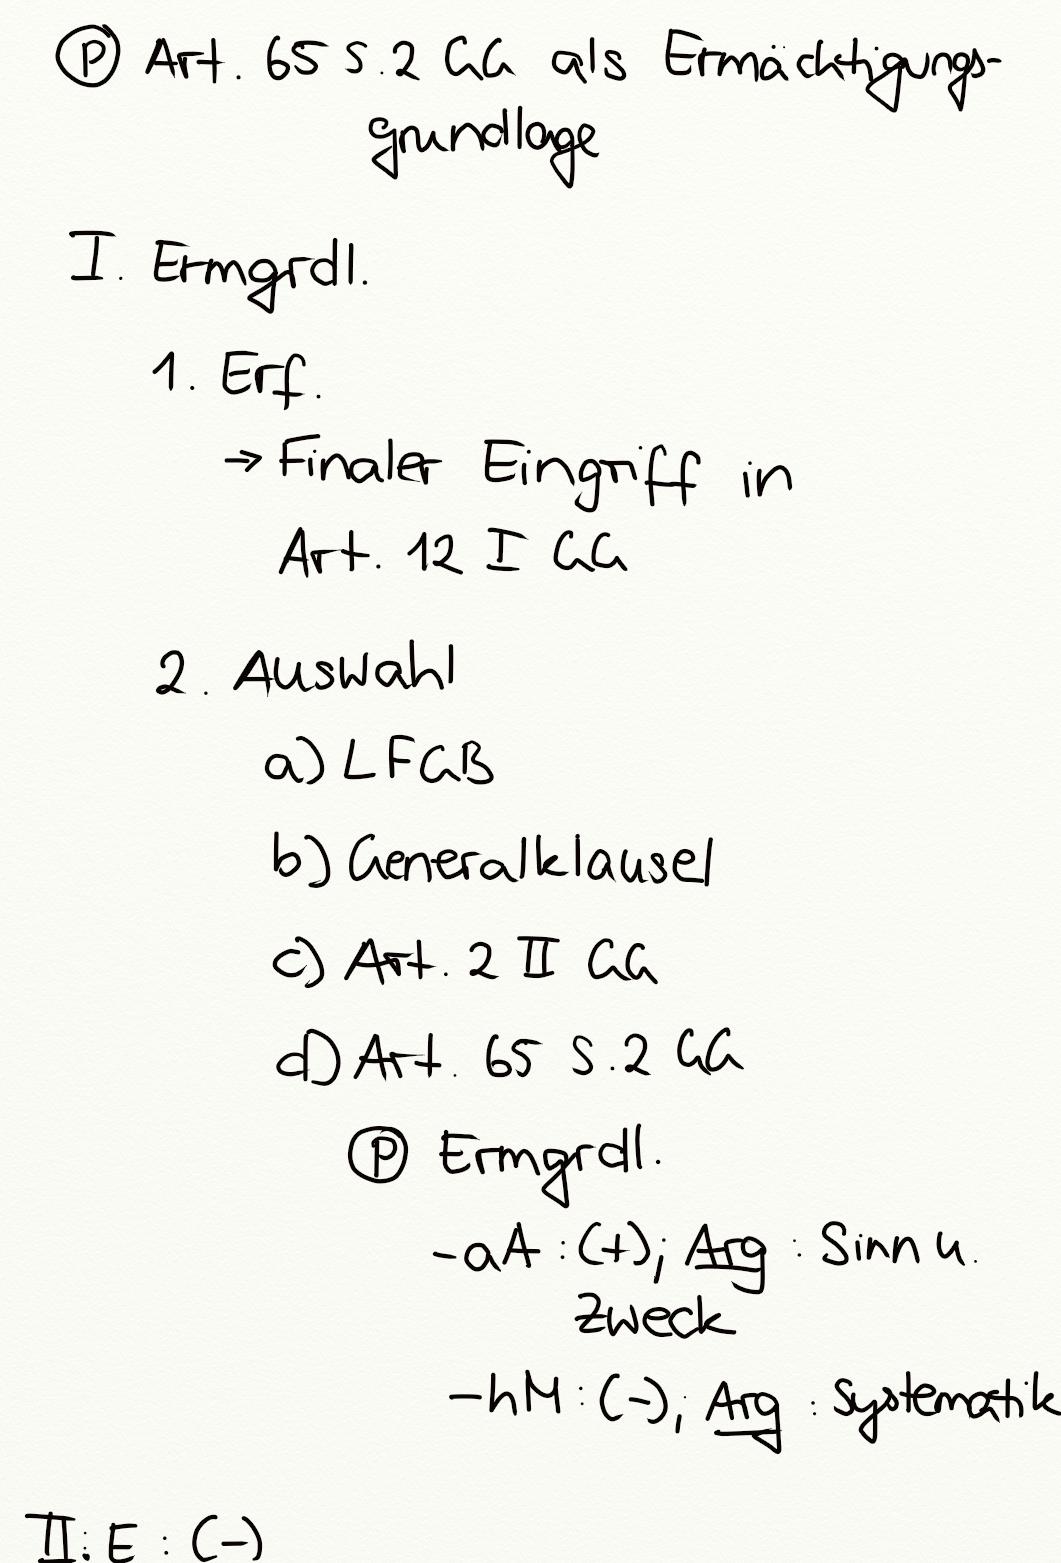 Ⓟ Art. 65 S.2 GG als Ermächtigungs-
grundlage
I. Ermgrdl.
1. Erf.
→ Finaler Eingriff in
Art. 12 I GG
2. Auswahl
a) LFGB
b) Generalklausel
c) Art. 2 II GG
d) Art. 65 S.2 GG
Ⓟ Ermgrdl.
- aA : (+); Arg : Sinn u.
Zweck
- hM : (-); Arg : Systematik
II. E : (-)